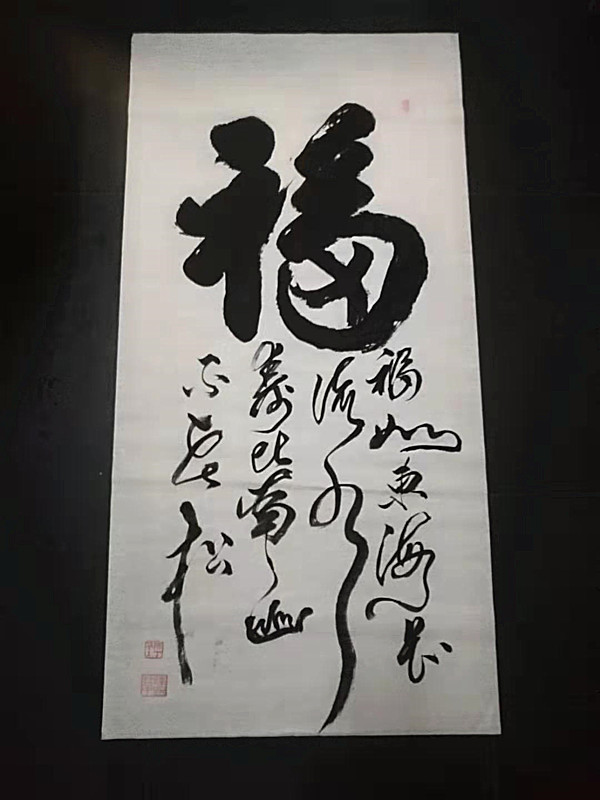 福
福如東海长
流水
寿比南山
不老松